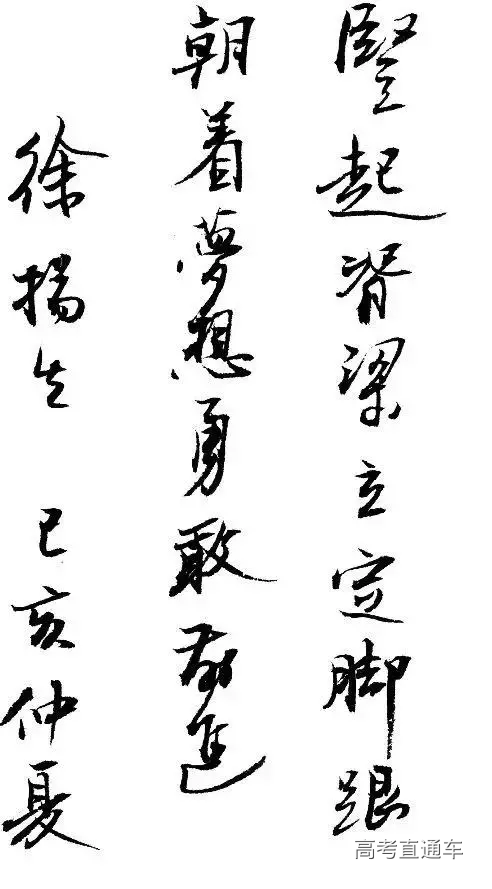 豎起脊梁立定脚跟
朝着夢想勇敢前進
徐揚生 己亥仲夏
高考直通车